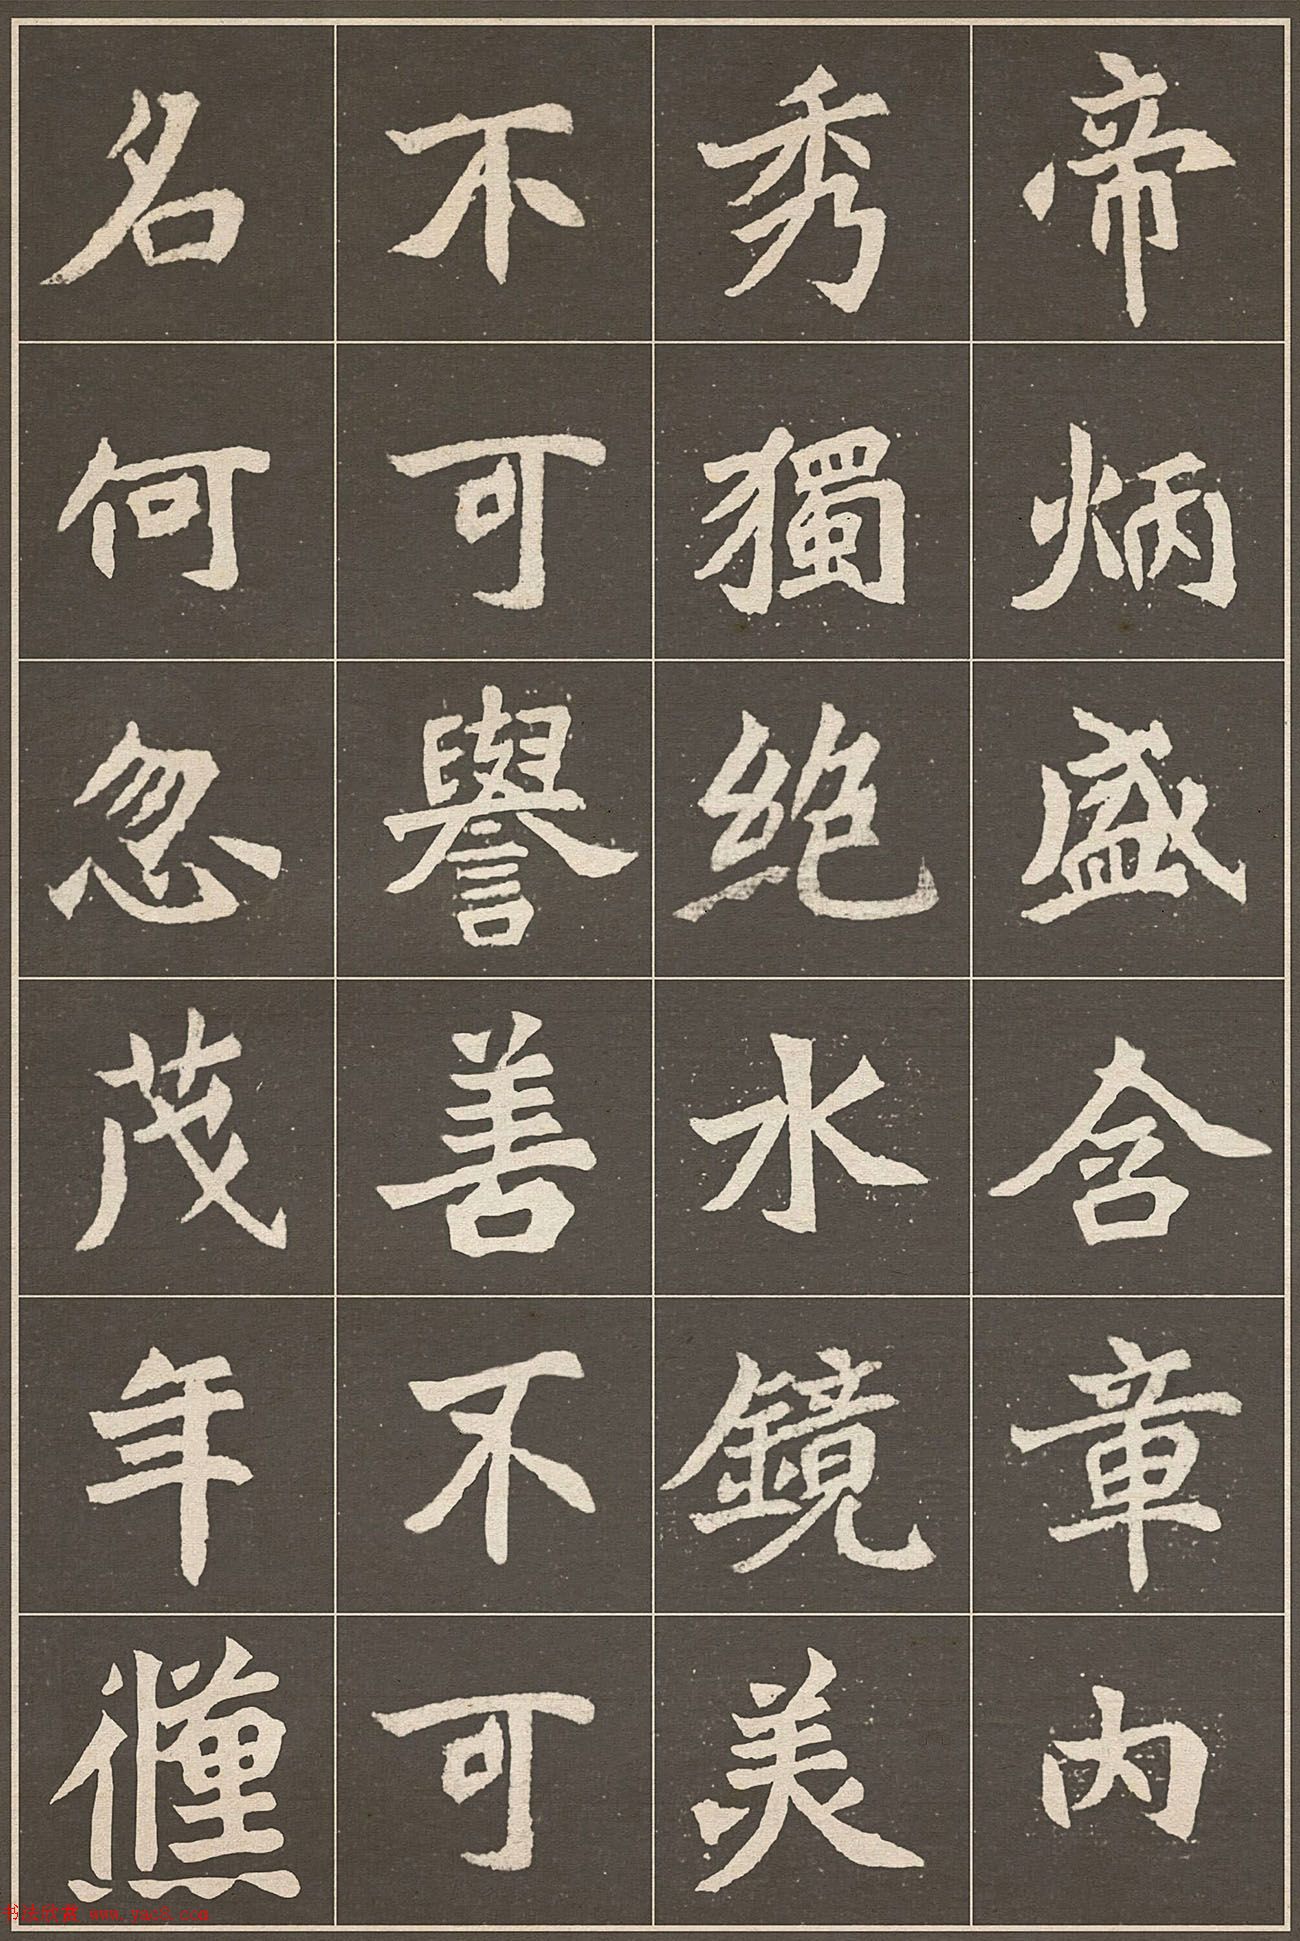 帝炳盛含章内
秀獨絶水鏡美
不可譽善不可
名何忽茂年
书法欣赏 www.yac8.com